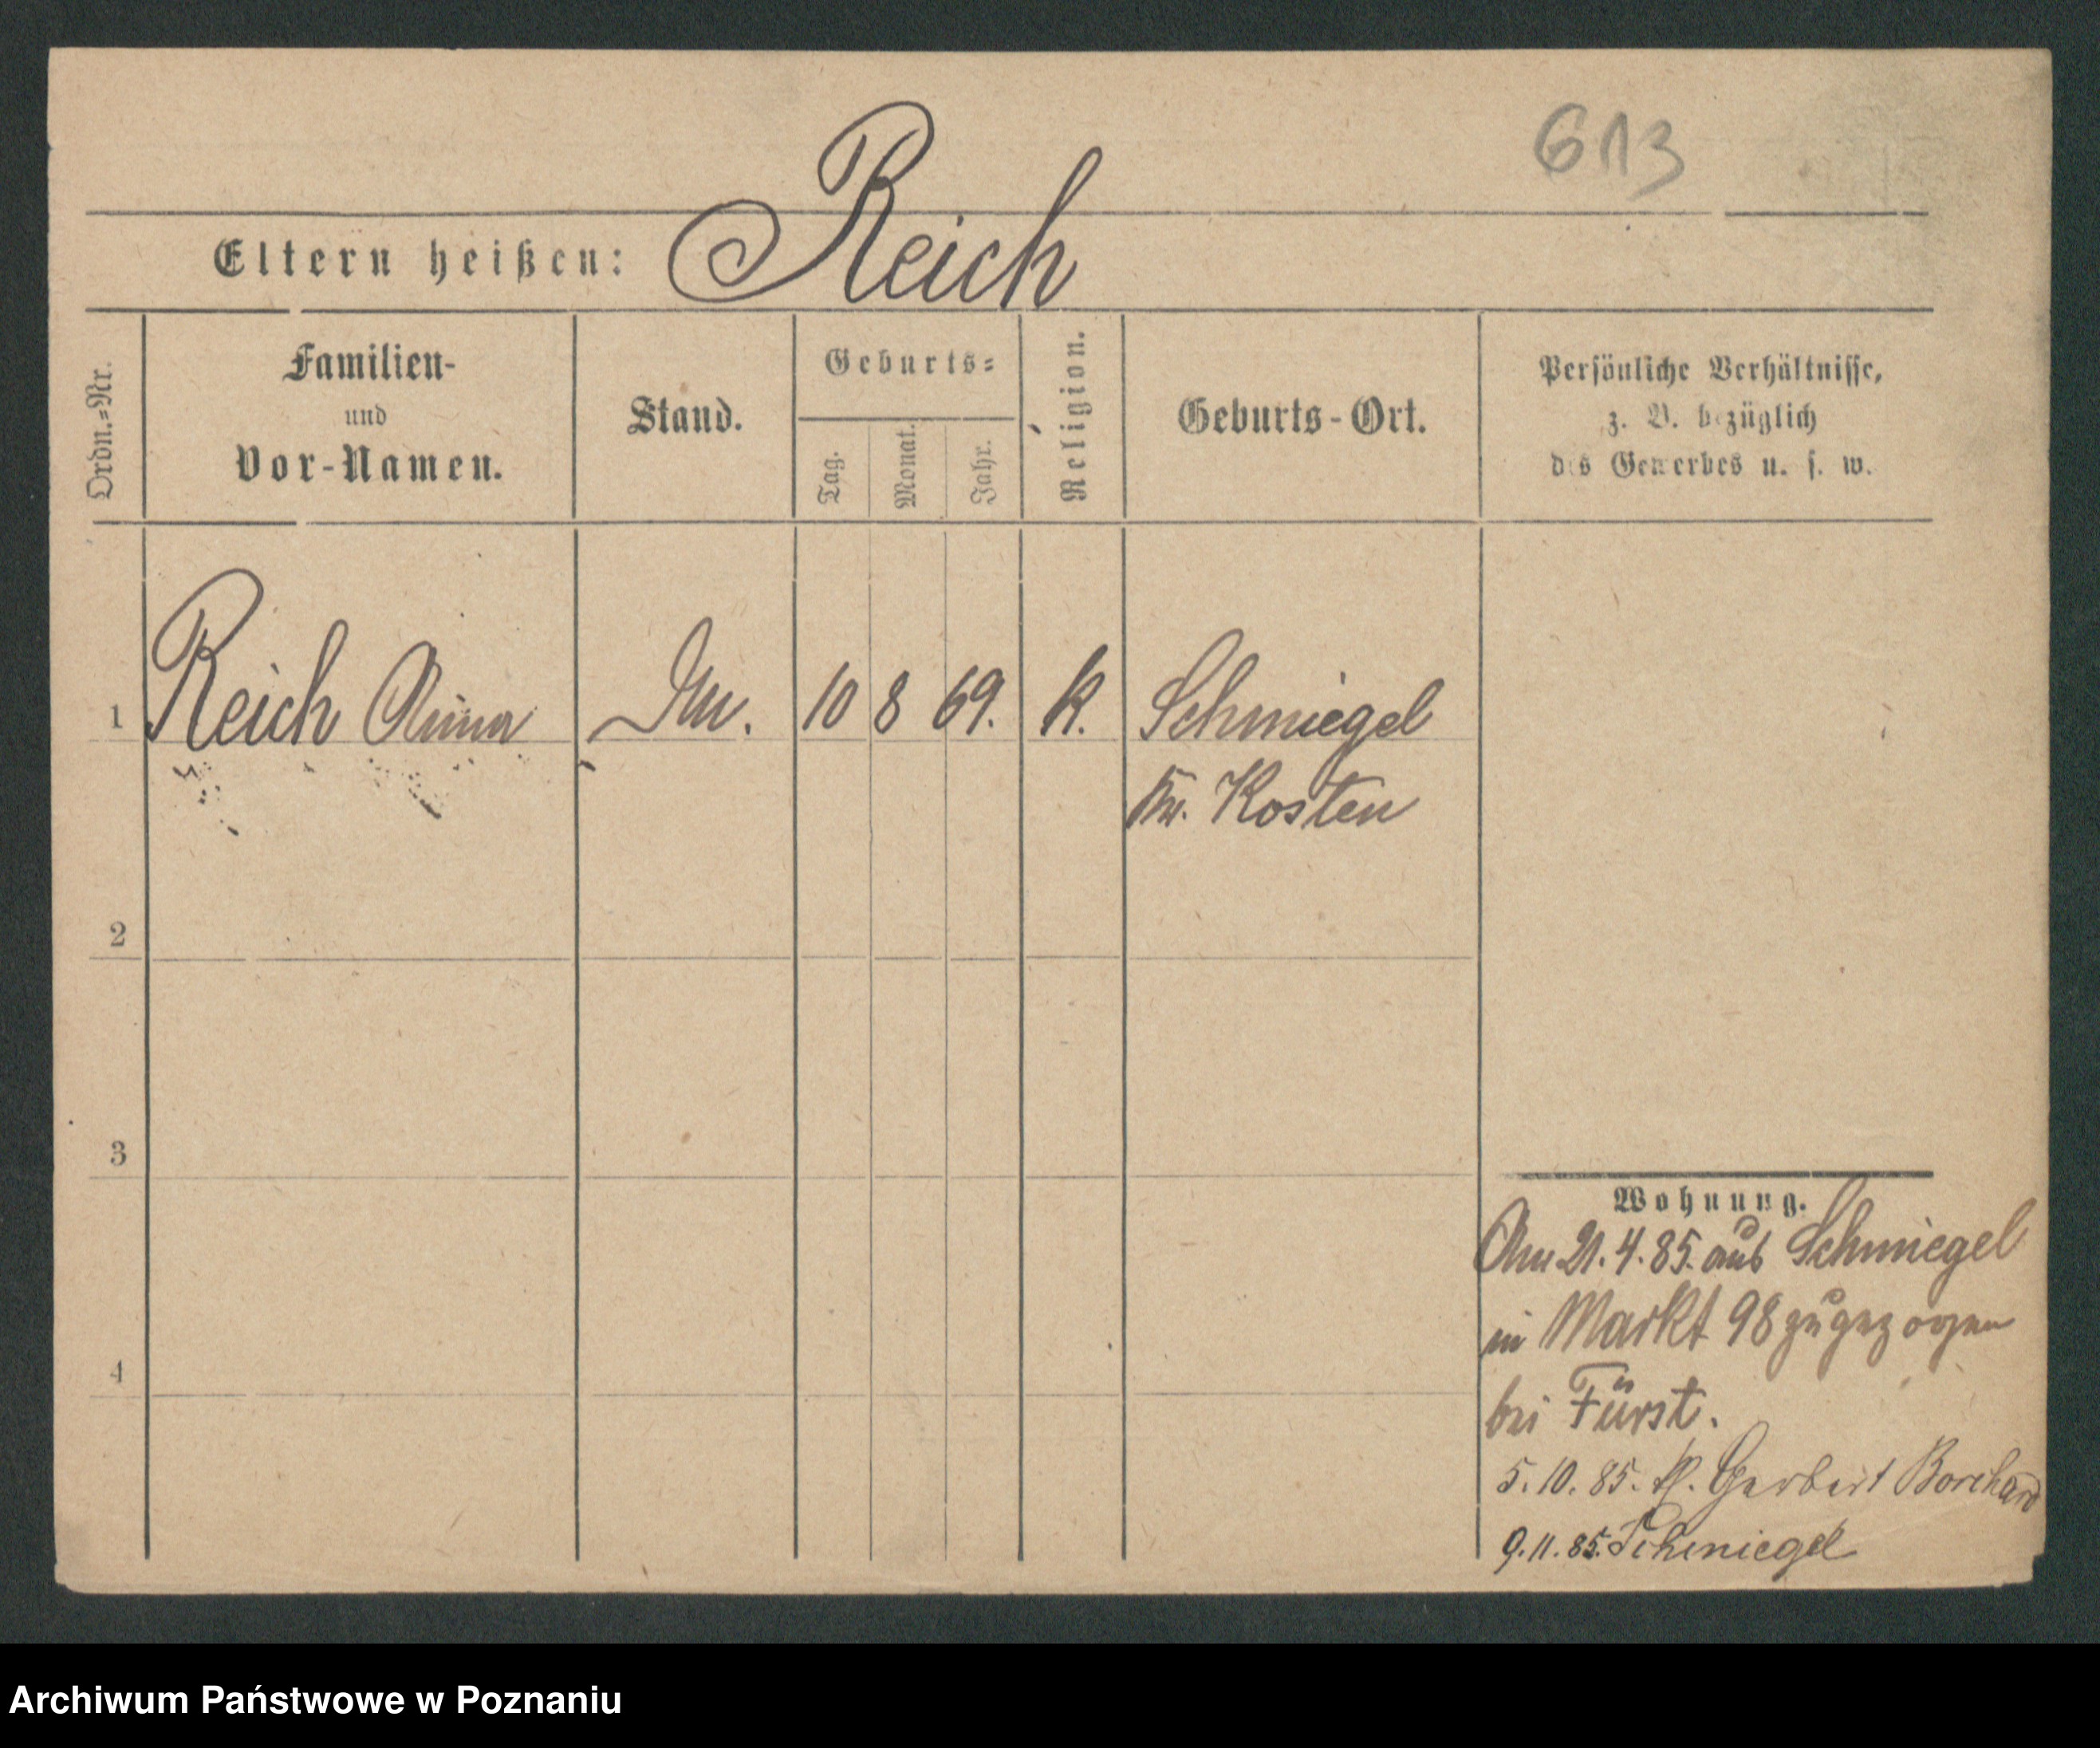 613
Eltern heißen: Reich
Ordn.=Nr.
Familien-
und
Vor-Namen.
Stand.
Geburts=
Tag.
Monat.
Jahr.
Religion.
Geburts-Ort.
Persönliche Verhältnisse,
z. B. bezüglich
des Gewerbes u. s. w.
1 Reich Anna 10 8 69. k. Schmiegel
Kr. Kosten
2
3
4
Wohnung.
Am 21.4.85. aus Schmiegel
in Markt 98 zugezogen
bei Fürst.
5.10.85. Borchard
9.11.85. Schmiegel
Archiwum Państwowe w Poznaniu